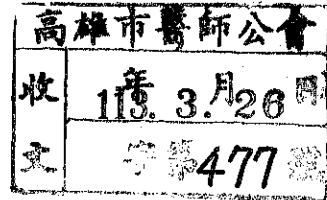 高雄市醫師公會
收 113年3.月26日
文 字第477號